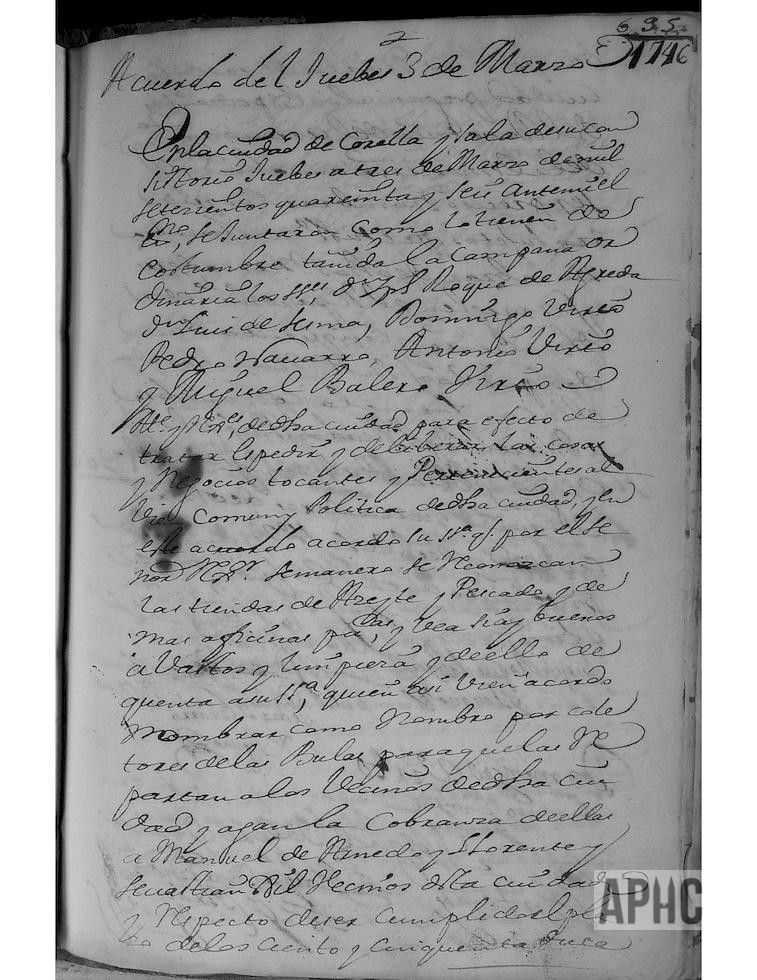 695
1746
Acuerdo del Juebes 3 de Marzo
En la ciudad de Corella y sala de su con
sistorio Juebes a tres de Marzo de mil
setezientos quarenta y seis ante mi el
ess.no, se Juntaron como lo tienen de
costumbre tañida la campana or
dinaria los ss.res, Roque de Agreda
Luis de Sesma, Domingo Virto
Pedro Navarro, Antonio Virto
y Miguel Balero Virto
Alc.e y Rex.es, de dha ciudad para efecto de
tratar espedir y deliberar las cosas
y Negocios tocantes y Pertenecientes al
Vien Comun y Politica de dha ciudad, y en
este acuerdo acordo su ss.a q. por el se
nor Rex.or semanero se Reconozcan
las tiendas de Azeyte y Pescado y de
mas oficinas pu.cas, y vea si ay buenos
avastos y limpieza y de ello de
quenta a su ss.a, quien asi vien acordo
nombrar como nombro por cole
tores de las Bulas para que las Re
partan a los Vecinos de dha ciu
dad y agan la Cobranza de ellas
a Manuel de Arnedo y Llorente y
Sevastian Gil Vecinos dsta ciudad
y Respecto de ser cumplido el pla
zo de los ciento y cinquenta Duca
APHC